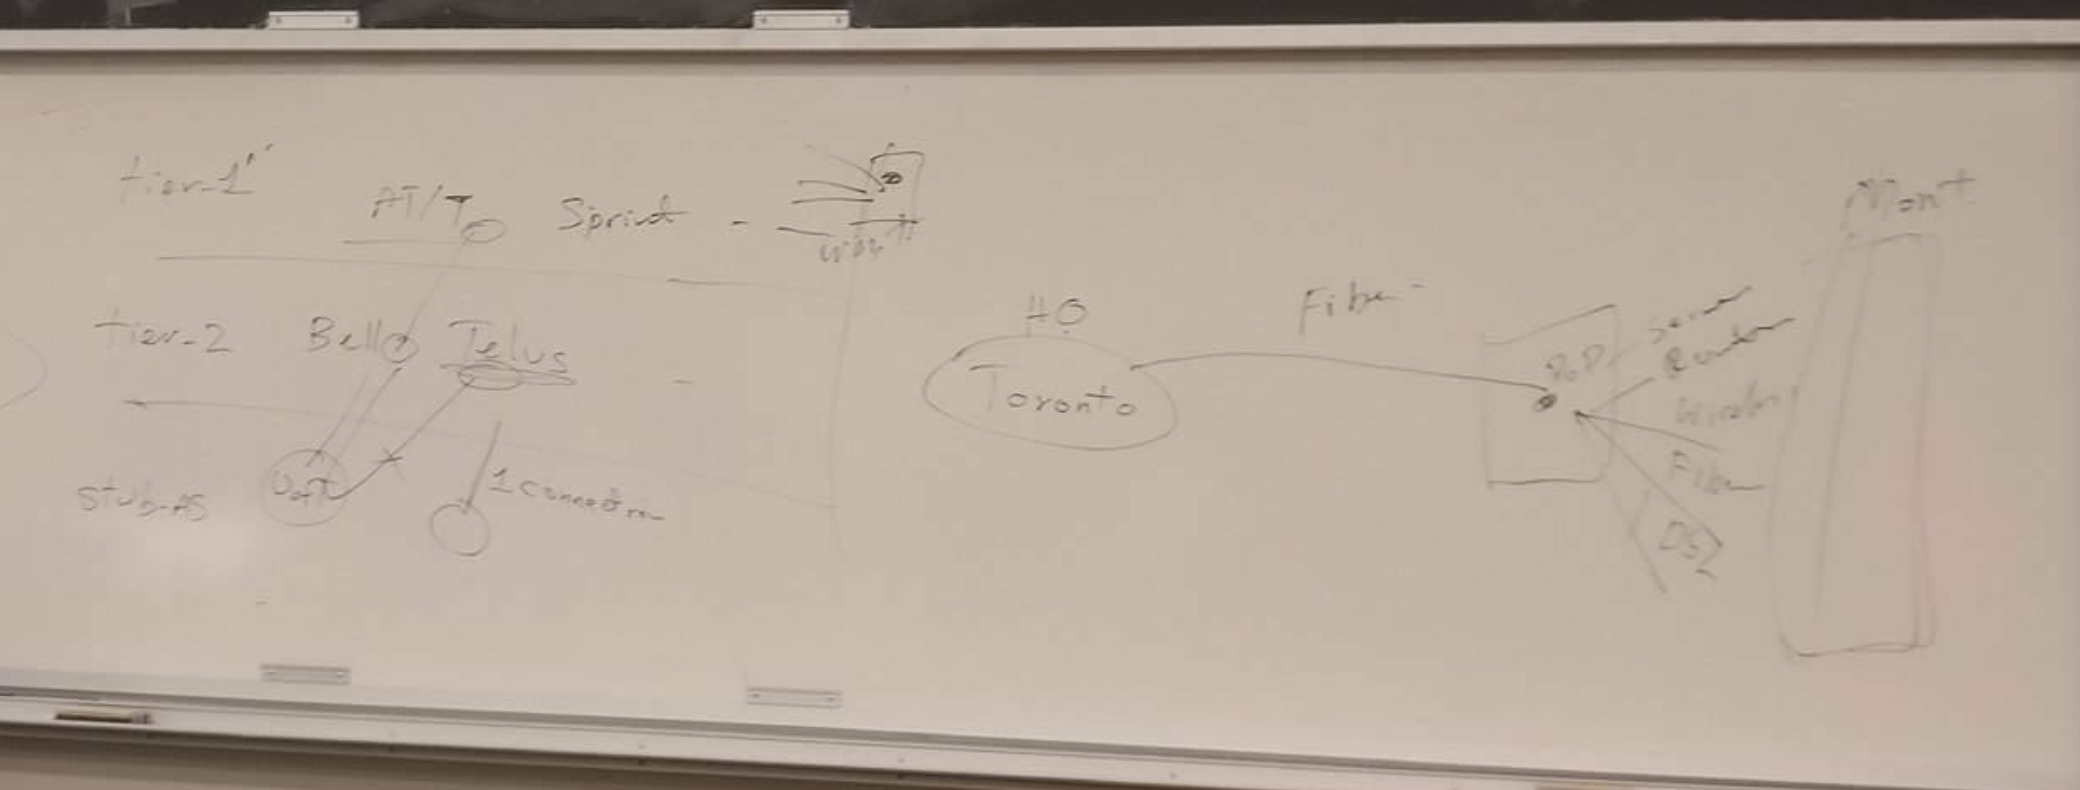 tier-1
AT/T Sprint -
tier-2 Bell Telus -
stub-AS UofT 1 connection
HQ
Toronto
Fiber
PoP
Wireless
Fiber
DSL
Mont